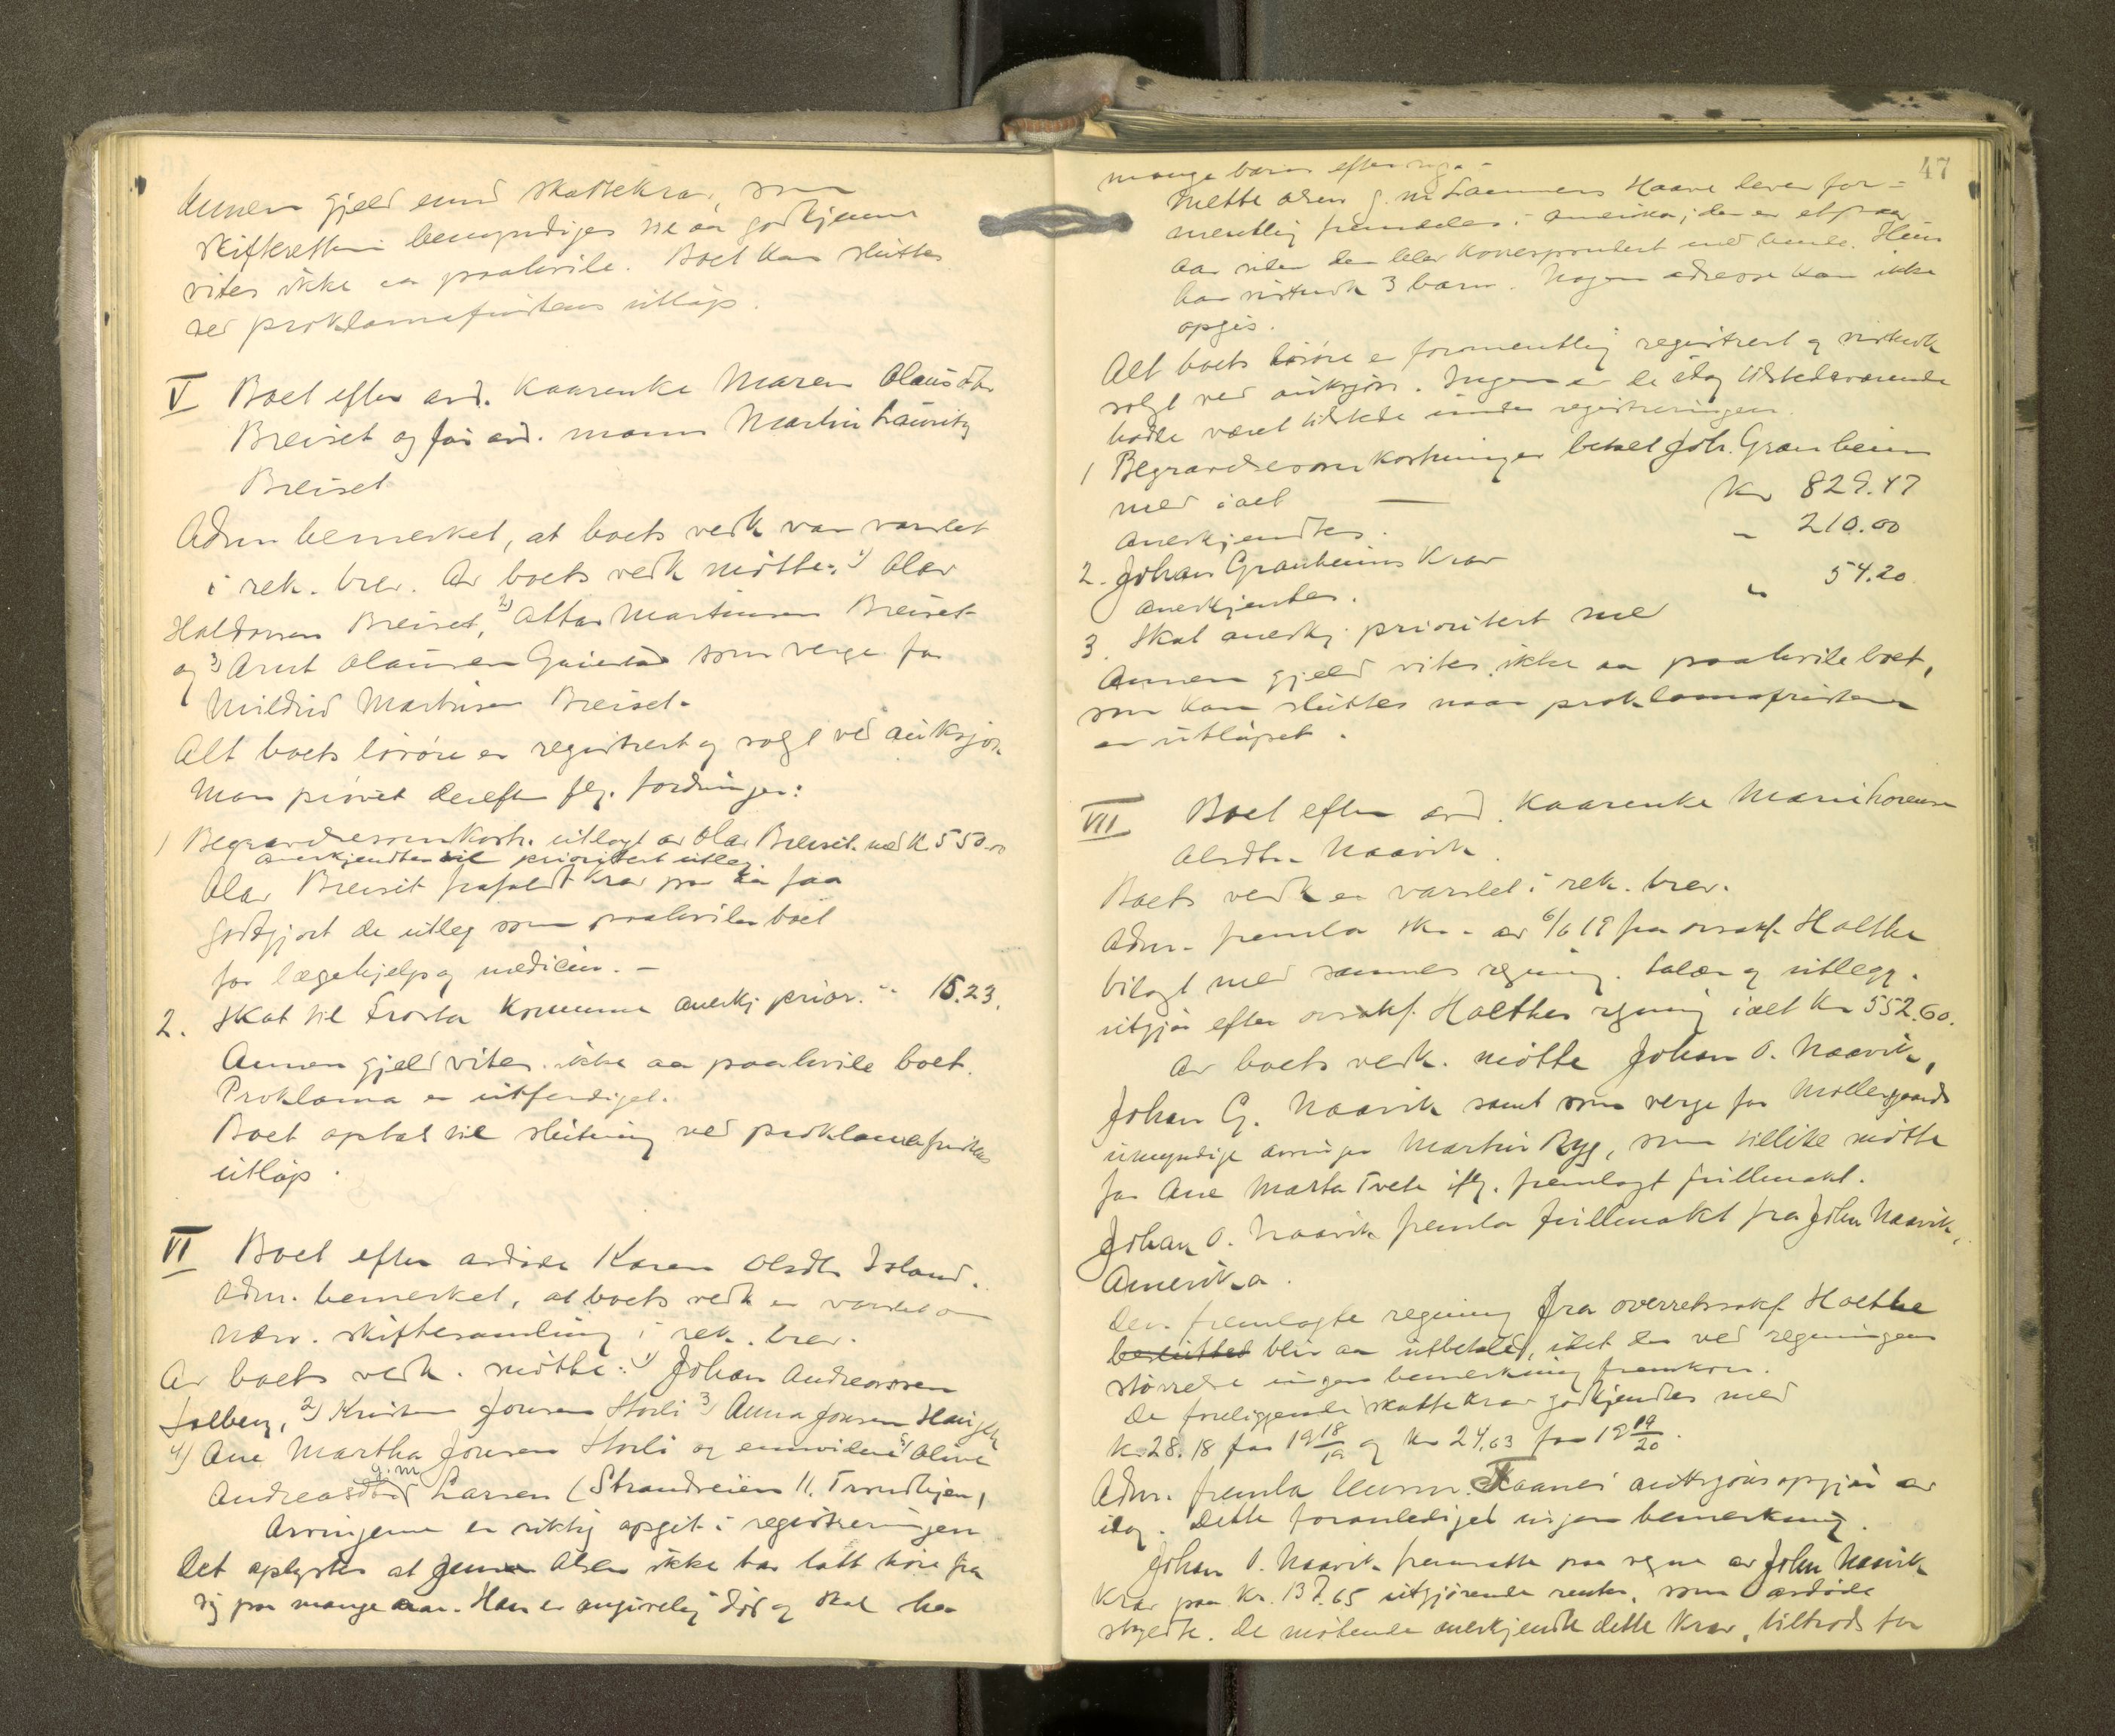 Annen gjeld enn skattekrav, som
skifteretten bemyndiges til aa godkjenne
vites ikke aa paahvile. Boet kan sluttes
ved proklamafristens utløp.
V Boet efter avd. kaarenke Maren Olausdtr
Breiset og før avd. mann Martin Lauritz
Breiset
Adm bemerket, at boets vedk var varslet
i rek. brev. Av boets vedk møtte: 1) Olav
Haldorsen Breiset, 2) Attar Martinsen Breiset
og 3) Arnt Olausen som verge for
Mildrid Martinsen Breiset.
Alt boets løsøre er registrert og solgt ved auksjon
Man prøvet derefter flg. fordringer:
1 Begravelsesomkostn. utlagt av Olav Breiset med K. 550.00
anerkjendtes til prioritert utlæg.
Olav Breiset frafaldt krav paa aa faa
godtgjort de utlæg som paahviler boet
for lægehjelp og medicin. -
2. Skat til Frosta Kommune anerkj. prior. " 15.23.
Annen gjeld vites ikke aa paahvile boet.
Proklama er utferdiget.
Boet optas til slutning ved proklamafristens
utløp.
VI Boet efter avdøde Karen Olsdtr Island.
Adm. bemerket, at boets vedk er varslet om
nærv. skiftesamling i rek. brev.
Av boets vedk. møtte: 1) Johan Andreassen
Solberg, 2) Kristen Jonsen Storli 3) Anna Jonsen
4) Ane Martha Jonsen Storli og 5) Oline
Andreasdtr g. m. Larsen (Strandveien 11. Trondhjem)
Arvingerne er riktig opgit i registreringen
Det oplystes at Olsen ikke har latt høre fra
sig paa mange aar. Han er angivelig død og skal ha
47
mange barn efter sig. -
Mette Olsen g. m. Laurens Haave lever for-
mentlig fremdeles i Amerika; der er et par
aar siden der blev korrespondert med hende. Hun
har vistnok 3 barn. Nogen adresse kan ikke
opgis.
Alt boets løsøre er formentlig registrert og vistnok
solgt ved auksjon. Ingen av de idag tilstedeværende
hadde været tilstede under registreringen.
1 Begravelsesomkostninger betalt Joh. Granheim
med ialt — Kr 829.47
Anerkjendtes.
2. Johan Granheims krav - 210.00
anerkjentes.
3. Skat anerkj. prioritert med " 54.20
Annen gjeld vites ikke aa paahvile boet,
som kan sluttes naar proklamafristen
er utløpet.
VII Boet efter avd. kaarenke Marie Lorense
Olsdtr. Naavik.
Boets vedk er varslet i rek. brev.
Adm. fremla skr. av 6/6 19 fra orsakf. Holthe
bilagt med sammes regning. Salær og utlegg.
utgjør efter orsakf. Holthes regning ialt kr 552.60.
Av boets vedk. møtte Johan O. Naavik,
Johan G. Naavik samt som verge for Mollersgaards
umyndige arvinger Martin Ryg, som tillike møtte
for Ane Marta Tvete iflg. fremlagt fuldmakt.
Johan O. Naavik fremla fuldmakt fra John Naavik,
Amerika.
Den fremlagte regning fra overretssakf. Holthe
besluttet blir aa utbetale, idet der ved regningens
størrelse ingen bemerkning fremkom.
De foreliggende skattekrav godkjendtes med
kr. 28.18 for 1918/19 og kr 24,63 for 1919/20.
Adm. fremla auksjonsopgjør av
idag. Dette foranlediget ingen bemerkning.
Johan O. Naavik fremsatte paa vegne av John Naavik
krav paa kr. 137.65 utgjørende renter, som avdøde
skyldte. De møtende anerkjendte dette krav, tiltrods for